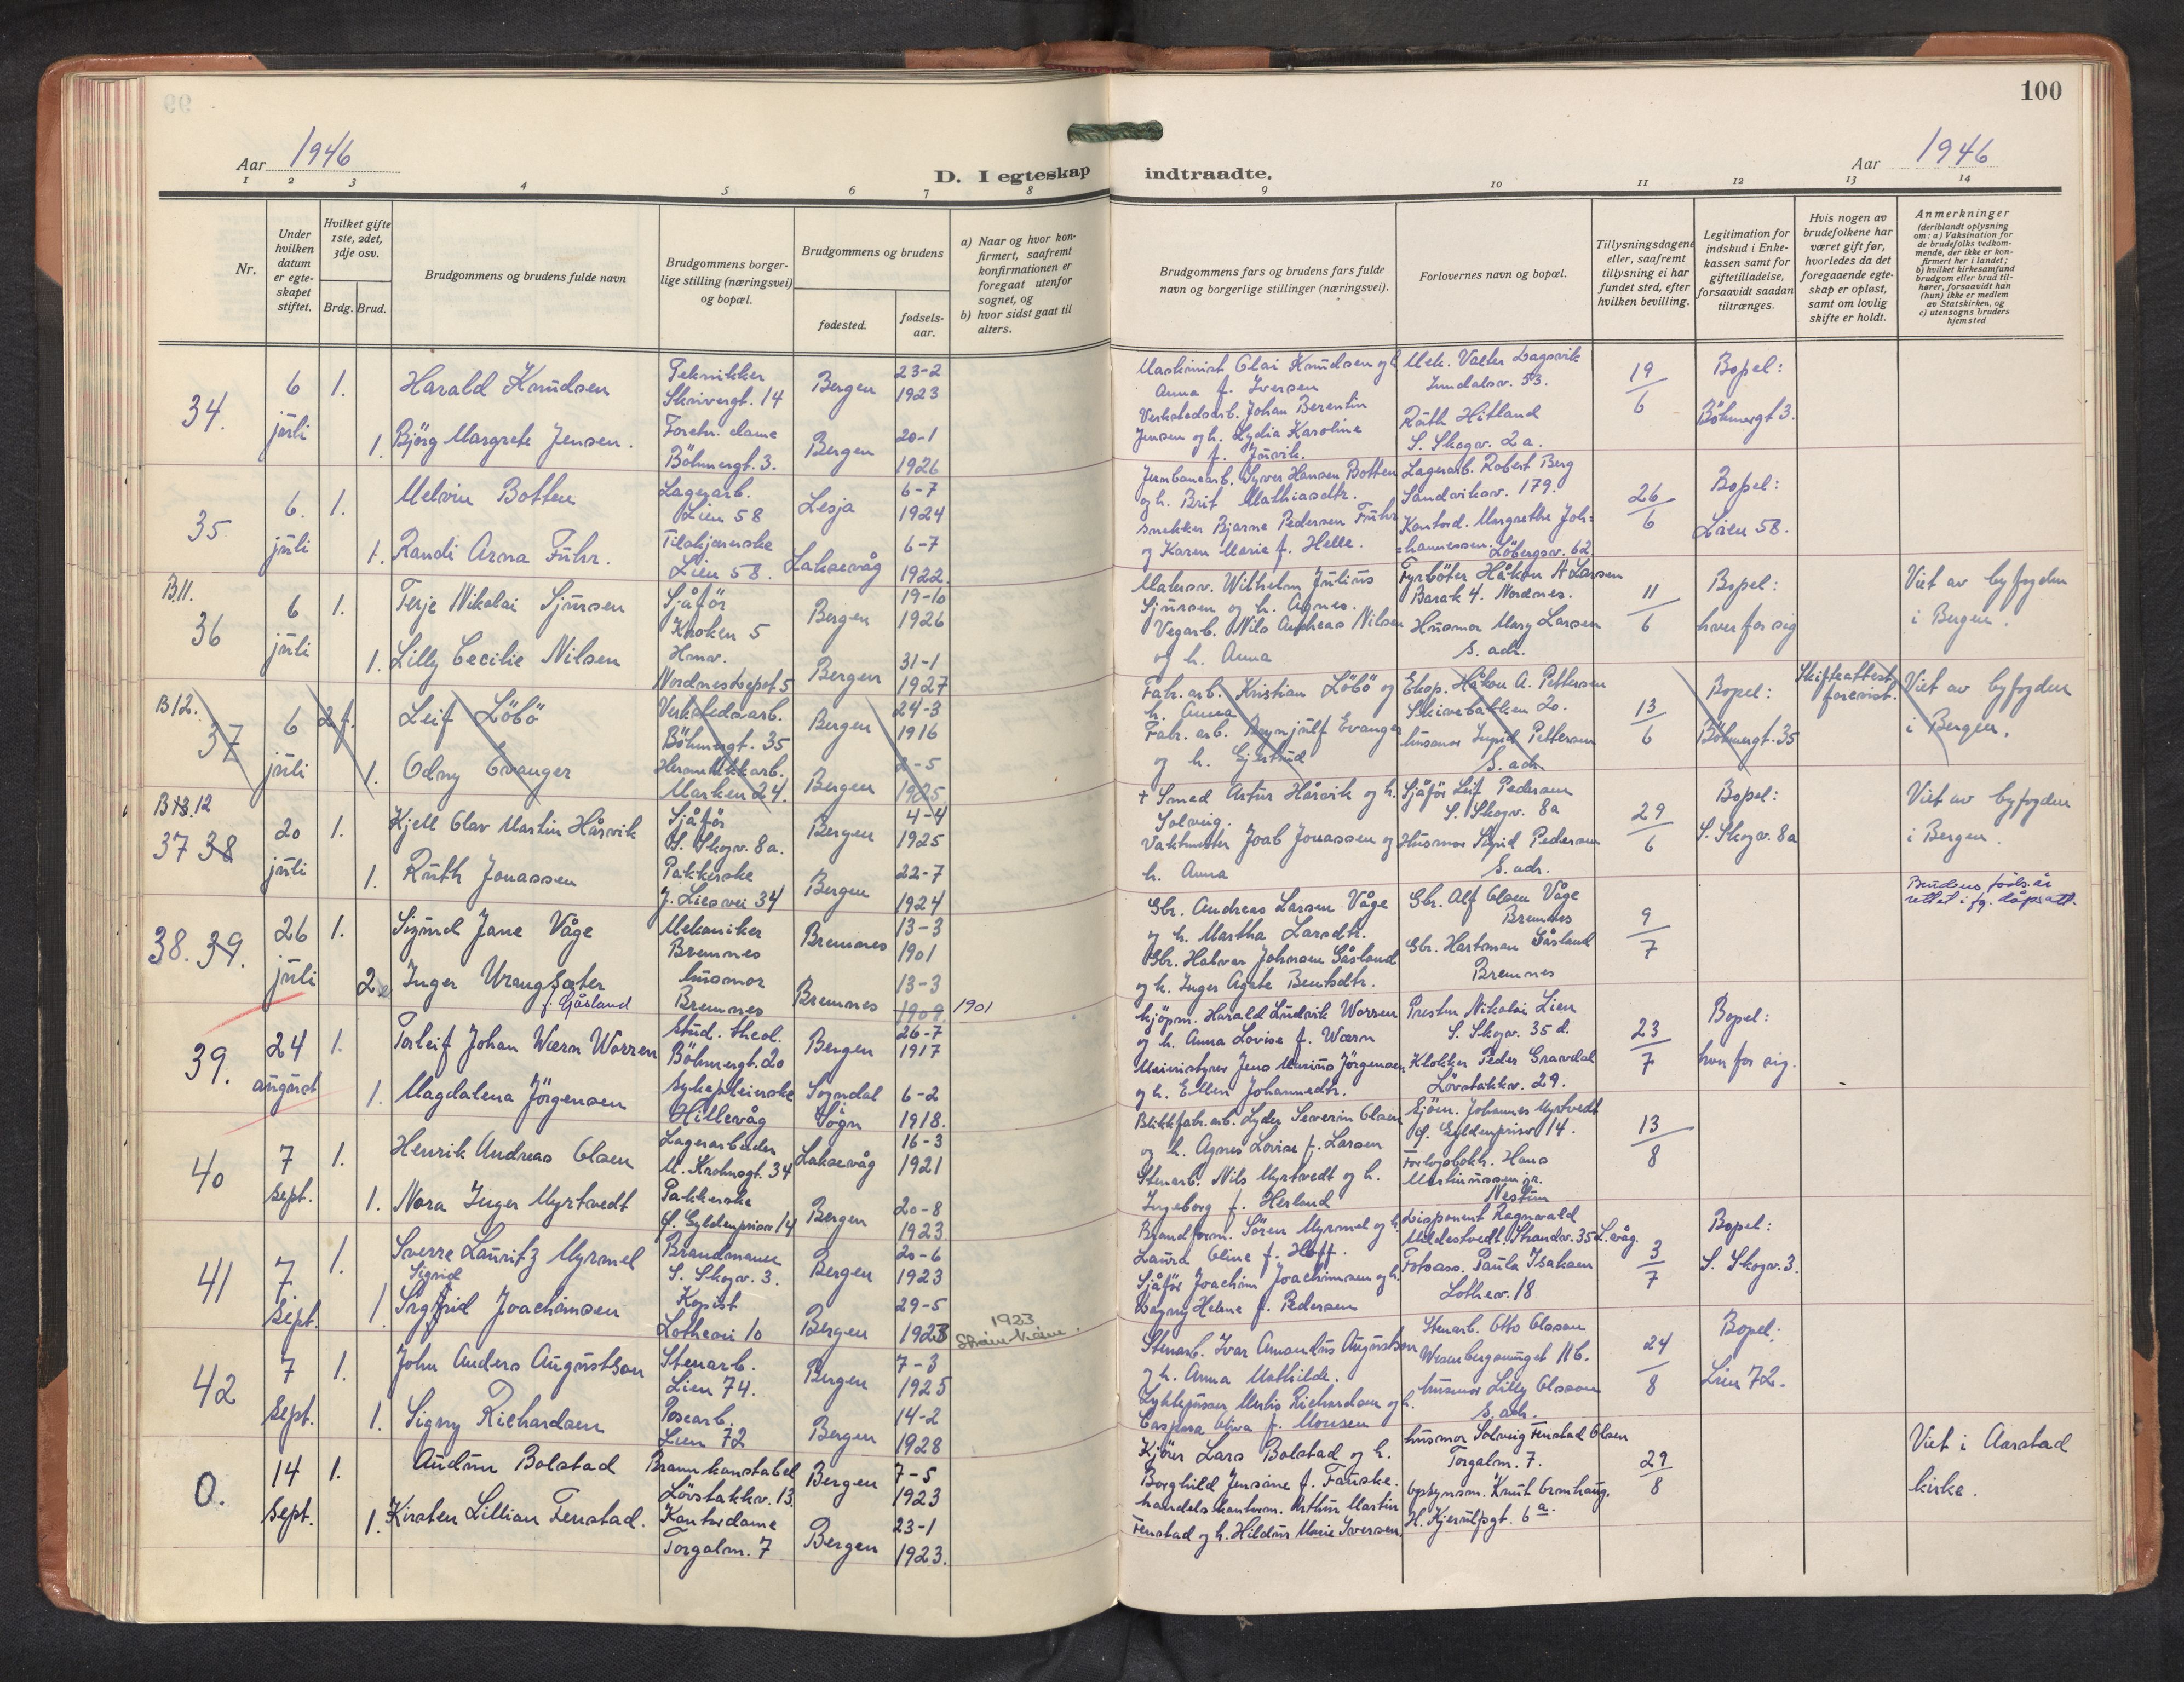 99
100
Aar 1946
D. I egteskap indtraadte.
Aar 1946
1 2 3 4 5 6 7 8 9 10 11 12 13 14
Nr.
Under hvilken datum er egteskapet stiftet.
Hvilket gifte 1ste, 2det, 3dje osv.
Brdg. Brud.
Brudgommens og brudens fulde navn
Brudgommens borgerlige stilling (næringsvei) og bopæl.
Brudgommens og brudens
fødested.
fødselsaar.
a) Naar og hvor konfirmert, saafremt konfirmationen er foregaat utenfor sognet, og
b) hvor sidst gaat til alters.
Brudgommens fars og brudens fars fulde navn og borgerlige stillinger (næringsvei).
Forlovernes navn og bopæl.
Tillysningsdagene eller, saafremt tillysning ei har fundet sted, efter hvilken bevilling.
Legitimation for indskud i Enkekassen samt for giftetilladelse, forsaavidt saadan tiltrænges.
Hvis nogen av brudefolkene har været gift før, hvorledes da det foregaaende egteskap er opløst, samt om lovlig skifte er holdt.
Anmerkninger (deriblandt oplysning om: a) Vaksination for de brudefolks vedkommende, der ikke er konfirmert her i landet; b) hvilket kirkesamfund brudgom eller brud tilhører, forsaavidt han (hun) ikke er medlem av Statskirken, og c) utensogns bruders hjemsted
34. 6 juli
1. Harald Knudsen
Tekniker
Skivergt. 14
Bergen
23-2 1923
1. Bjørg Margrete Jensen.
Forretn. dame
Böhmergt. 3.
Bergen
20-1 1926
Maskinist Olai Knudsen og h.
Anna f. Iversen
Verkstedarb. Johan Berentin
Jensen og h. Lydia Karoline
Mek. Valter Dagsvik
Ruth Hitland
S. Skogv. 2 a.
19/6
Bopel:
Böhmergt 3.
35 6. juli
1. Melvin Botten
Lagerarb.
Lien 58
Lesja
6-7 1924
1. Randi Arna Führ.
Tilskjærerske
Lien 58.
Laksevåg
6-7 1922
Jernbanearb. Syver Hansen Botten
og h. Brit Mathiasdtr.
Snekker Bjarne Pedersen Führ
og Karen Marie f. Helle.
Lagerarb. Robert Berg
Sandviksv. 179.
Kontord. Margrethe Joh=
=hannessen. Löbergsv. 62
26/6
Bopel:
Lien 58.
B.11.
36 6 juli
1. Terje Nikolai Sjursen
Sjåför
Kroken 5
Bergen
19-10 1926
1. Lilly Cecilie Nilsen
Hmv.
Nordnes Depot 5
Bergen
31-1 1927
Malersv. Wilhelm Julius
Sjursen og h. Agnes.
Vegarb. Nils Andreas Nilsen
og h. Anna
Fyrböter Håkon A Larsen
Barak 4. Nordnes.
Husmor Mary Larsen
s. adr.
11/6
Bopel:
hver for sig
Viet av byfogden
i Bergen.
B 12.
37 6 juli
2 f. Leif Löbö
Verkstedsarb.
Böhmergt. 35
Bergen
24-3 1916
1. Odny Evanger
Hermetikkarb.
Marken 24.
Bergen
2-5 1925
Fabr. arb. Kristian Löbö og
h. Anna
Fabr. arb. Brynjulf Evanger
og h. Gjertrud
Eksp. Håkon A. Pettersen
Skivebakken 20.
husmor Ingrid Pettersen
S. adr.
13/6
Bopel:
Böhmergt. 35
Skifteattest
forevist.
Viet av byfogden
i Bergen.
B 13. 12
37 38 20 juli
1. Kjell Olav Martin Hårvik
Sjåför
S. Skogv. 8a.
Bergen
4-4 1925
1. Ruth Jonassen
Pakkerske
J. Lies vei 34
Bergen
22-7 1924
+ Smed Artur Hårvik og h.
Solveig.
Vaktmester Joab Jonassen og
h. Anna
Sjåför Leif Pedersen
S. Skogv. 8a
Husmor Sigrid Pedersen
S. adr.
29/6
Bopel:
S. Skogv. 8a
Viet av byfogden
i Bergen.
38. 39. 26 juli
1. Sigurd Jane Våge
Mekaniker
Bremnes
Bremnes
13-3 1901
2 Inger Vrangsæter
f. Gåsland
husmor
Bremnes
Bremnes
13-3 1909 1901
Gbr. Andreas Larsen Våge
og h. Martha Larsdtr.
Gbr. Halvor Johnsen Gåsland
og h. Inger Agate Bentsdtr.
Gbr. Alf Olsen Våge
Bremnes
Gbr. Hartman Gåsland
Bremnes
9/7
Brudens føds.år
rettet i fg. dåpsatt.
39. 24 august
1. Torleif Johan Wærn Worren
stud. theol.
Böhmergt. 20
Bergen
26-7 1917
1. Magdalena Jörgensen
sykepleierske
Hillevåg
Sogndal
Sogn
6-2 1918.
Kjöpm. Harald Ludvik Worren
og h. Anna Lovise f. Wærn
Meieristyrer Jens Marius Jörgensen
og h. Ellen Johannedtr.
Presten Nikolai Lien
S. Skogv. 35 d.
Klokker Peder Gravdal
Lövstakkv. 29.
23/7
Bopel:
hver for sig.
40 7 sept.
1. Henrik Andreas Olsen
Lagerarbeider
M. Krohnsgt. 34
Laksevåg
16-3 1921
1. Nora Inger Myrtvedt
Pakkerske
Ø. Gyldenprisv 14
Bergen
20-8 1923
Blikkfabr.arb. Lyder Severin Olsen
og h. Agnes Lovise f. Larsen
Stenarb. Nils Myrtvedt og h.
Ingeborg f. Herland
Sjöm. Johannes Myrtvedt
Ø. Gyldenprisv 14.
Forlagsbokh. Hans
Martinussen jr.
Nestun
13/8
41 7 sept.
1. Sverre Lauritz Myrmel
Brandmann
S. Skogv. 3.
Bergen
20-6 1923
Sigrid
1. Sigfrid Joachimsen
Kopist
Lothevei 10
Bergen
29-5 1923
1923
Brandform. Sören Myrmel og h.
Laura Oline f. Hoff.
Sjåför Joachim Joachimsen og h.
Dagny Helene f. Pedersen
Disponent Ragnvald
Mildestvedt. Strandv. 35 L.våg.
Fotoass. Paula Isaksen
Lothev. 18
3/7
Bopel:
S. Skogv. 3.
42 7 sept.
1. John Anders Augustson
Stenarb.
Lien 74.
Bergen
7-3 1925
1. Signy Richardsen
Posearb.
Lien 72
Bergen
14-2 1928
Stenarb. Ivar Amandus Augustson
og h. Anna Mathilde.
Caspara Oliva f. Monsen
Stenarb. Otto Olsson
husmor Lilly Olsson
S. adr.
24/8
Bopel:
Lien 72.
0. 14 sept.
1. Audun Bolstad
Brannkonstabel
Lövstakkv. 13
Bergen
7-5 1923
1. Kirsten Lillian Fenstad.
Kontordame
Torgalm. 7
Bergen
23-1 1923.
Kjörer Lars Bolstad og h.
Borghild Jensine f. Fauske.
handelskontorm. Arthur Martin
Fenstad og h. Hildur Marie Iversen.
husmor Solveig Fenstad Olsen
Torgalm. 7.
opsynsm. Knut Ormhaug.
H. Kjerulfsgt. 6 a
29/8
Viet i Aarstad
kirke.